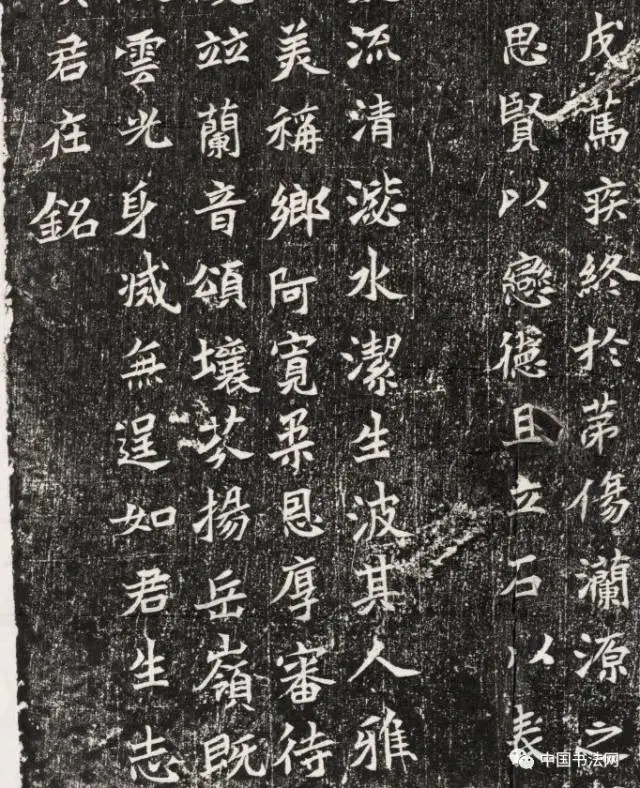 戊篤疾終於苐傷瀾源之
思賢以戀德且立石以表
流清澁水潔生波其人雅
美稱鄉阿寬柔恩厚審待
竝蘭音頌壤芬揚岳嶺既
雲光身减無逞如君生志
君在銘
中国书法网